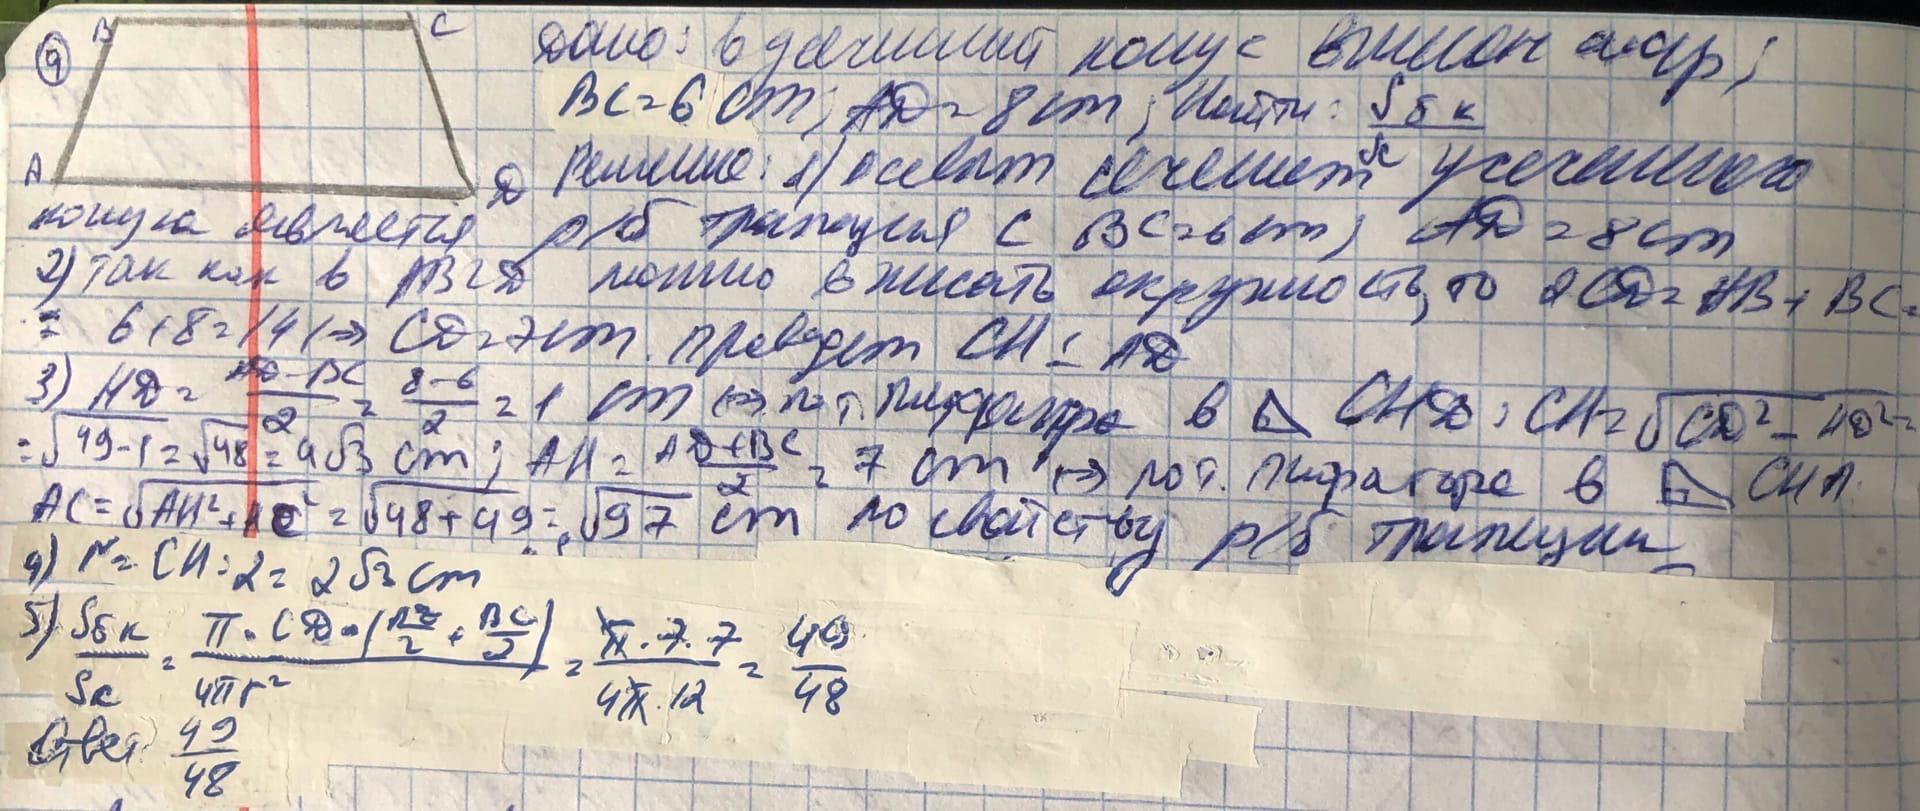 9
B C
A D
Дано: в усечённый конус вписан шар;
BC=6 cm; AD=8cm; Найти: Sбк/Sс
Решение: 1) осевым сечением усеченного
конуса является р/б трапеция с BC=6cm; AD=8cm
2) так как в ABCD можно вписать окружность, то 2CD=AB+BC=
= 6+8=14 => CD=7cm. проведем CH⊥AD
3) HD = (AD-BC)/2 = (8-6)/2 = 1 cm => по т. Пифагора в ⊿ CHD: CH=√(CD²-HD²)=
=√(49-1)=√48=4√3 cm; AH=(AD+BC)/2=7 cm => по т. Пифагора в ⊿ CHA
AC=√(AH²+HC²)=√(48+49)=√97 cm по свойству р/б трапеции
4) r=CH:2=2√3 cm
5) Sбк/Sс = π·CD·(AD/2+BC/2)/4πr² = π·7·7/4π·12 = 49/48
Ответ: 49/48